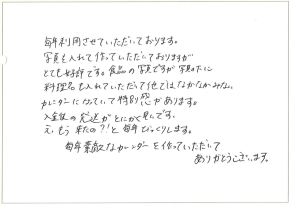 毎年利用させていただいております。
写真を入れて作っていただいておりますが
とても好評です。食品の写真ですが写真の下に
料理名も入れていただいて他ではなかなかみない
カレンダーになっていて特別感があります。
入金後の発送がとにかく早いです。
え、もう来たの?!と毎年びっくりします。
毎年素敵なカレンダーを作っていただいて
ありがとうございます。